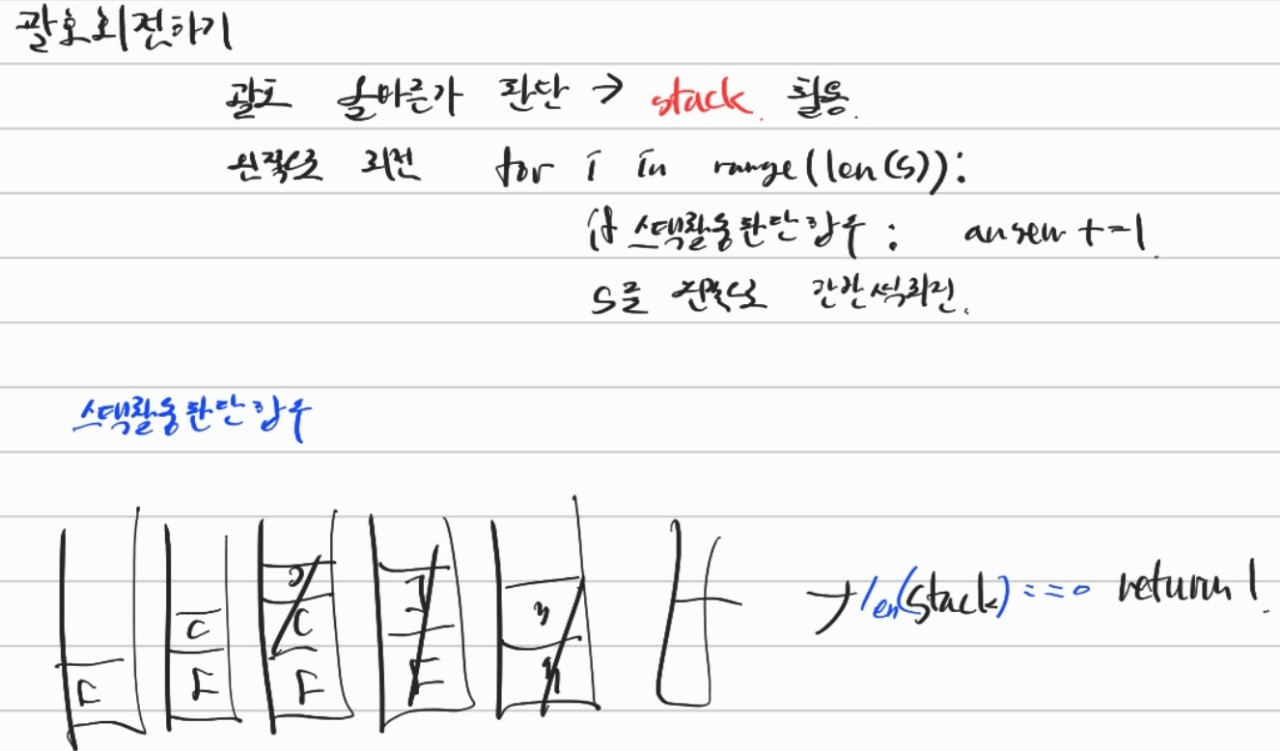 괄호회전하기
괄호 올바른가 판단 → stack 활용.
왼쪽으로 회전 for i in range(len(s)):
if 스택활용판단함수 : ansew +=1
s를 왼쪽으로 한칸씩회전.
스택활용판단함수
[ [ ( [ ( ) [ ] { }
→ len(stack) == 0 return 1